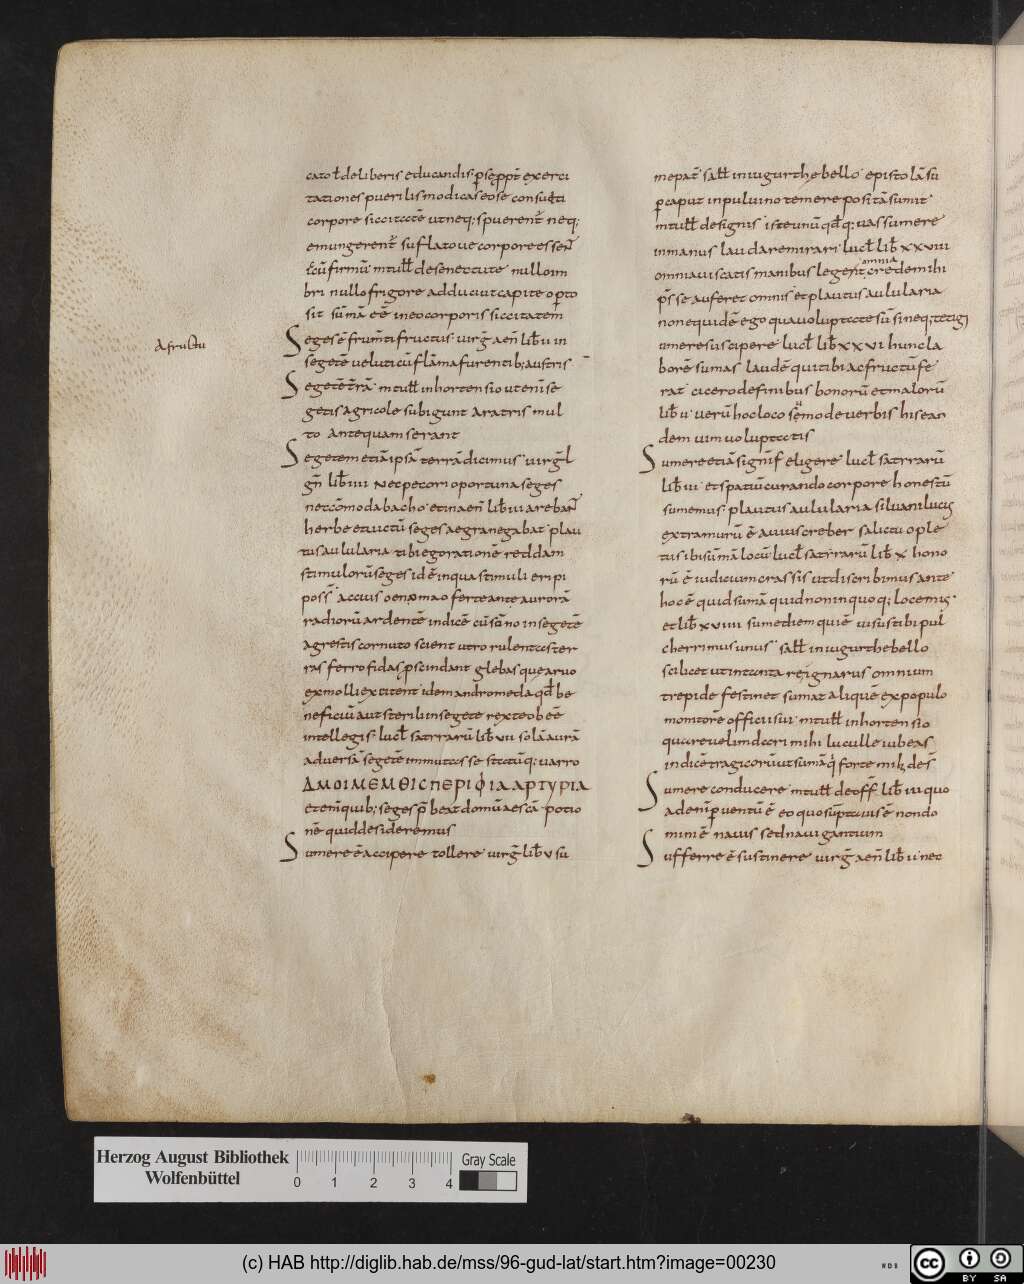 cato ł de liberis educandis ꝑse ppt̄ exerci
tationes puerilis modicas eos e consueti
corpore siccitatē ut neq; spuerent̄ neq;
emungerent̄ suflatoue corpore essen̄
t cū firmū m tull̄ de senectute nullo im
bri nullo frigore adduci ut capite opto
sit sūmā eē in eo corporis siccitatem
Seges ē frum̄ti fructus uirḡ aen̄ lib̄ ii in
segetē ueluti cū flāma furentib; austris
Segetē trā m tull̄ in hortensio ut enī se
getis agricole subigunt aratris mul
to antequam serant
Segetem etiā ipsā terrā dicimus uirḡl
gn̄ lib̄ iiii nec pecori oportuna seges
nec cōmoda bacho et in aen̄ lib̄ iii areban̄
herbe et uictū seges aegra negabat plau
tus aulularia tibi ego rationē reddam
stimulorū seges id ē in qua stimuli eripi
poss̄ accius oenomao forte ante aurorā
radiorū ardentē indicē cū sāno in segetē
agrestis cornuto scient utro rulentas ter
ras ferro fidas pscindant glebas que aruo
ex molli excitent idem andromeda qd̄ be
neficiū aut sterili in segete rex te obeē
intellegis lucl̄ satrrarū lib̄ vii solā aurā
aduersā segetē immutasse statūq; uarro
ΔΜΟΙΜΕΜΘΙС ΠΕΡΙΦΙΑΑΡΓΥΡΙΑ
etenī quib; seges p̄beat domū aescā potio
nē quid desideremus
Sumere ē accipere tollere uirḡ lib̄ v su
a fructu
me pat̄ sall̄ in iugurthe bello epistolā sū
ꝑ caput in puluino temere positā sumit
m tull̄ de signis iste unū qd̄q; uas sumere
in manus laudare mirari lucl̄ lib̄ xxviii
omnia uiscatis manibus legent omnia credemihi
p̄sse auferet omnis et plautus aulularia
non equidē ego qua uoluptate sū sineq; tetigi
umere suscipere lucl̄ lib̄ xxvi hunc la
borē sumas laudē qui tibi ac fructū fe
rat cicero de finibus bonorū et malorū
lib̄ ii uerū hoc loco sēmo de uerbis his ean
dem uim uoluptatis
Sumere etiā signif̄ eligere lucl̄ satrrarū
lib̄ iii et spatiū curando corpore honestū
sumemus plautus aulularia siluani lucis
extra murū ē auius creber salictu ople
tus ibi sūmā locū lucl̄ satrrarū lib̄ x hono
rū ē iudicium crassis ut discribimus ante
hoc ē quid sumā quid non in quoq; locemus
et lib̄ xviiii sume diem qui ē uisus tibi pul
cherrimus unus sall̄ in iugurthe bello
scilicet ut in tanta re ignarus omnium
trepide festinet sumat aliquē ex populo
monitorē officii sui m tull̄ in hortensio
quare uelim dari mihi luculle iubeas
indicē tragicorū ut sumā q̇ forte mihi des̄
Sumere conducere m tull̄ de off̄ lib̄ iii quo
ad enī ꝑuentū ē eo quo sūpta nauis ē non do
mini ē nauis sed nauigantium
Sufferre ē sustinere uirḡ aen̄ lib̄ ii nec
Herzog August Bibliothek
Wolfenbüttel
0 1 2 3 4
Gray Scale
(c) HAB http://diglib.hab.de/mss/96-gud-lat/start.htm?image=00230
WDB
cc BY SA